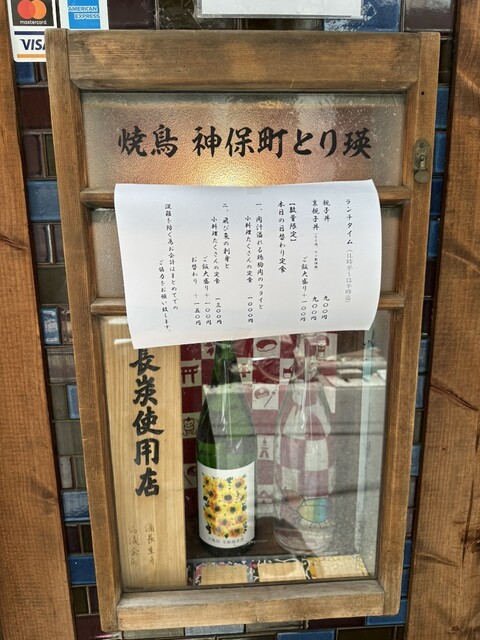 mastercard
AMERICAN EXPRESS
VISA
焼鳥 神保町とり瑛
ランチタイム
親子丼 九〇〇円
裏親子丼 九〇〇円
ご飯大盛り+一〇〇円
【数量限定】
本日の日替わり定食
一、肉汁溢れる鶏胸肉のフライと
小料理たくさんの定食 一〇〇〇円
二、飛び魚の刺身と
小料理たくさんの定食 一三〇〇円
ご飯大盛り+一〇〇円
お替わり +一五〇円
混雑を防ぐ為お会計はまとめての
ご協力をお願い致します。
長炭使用店